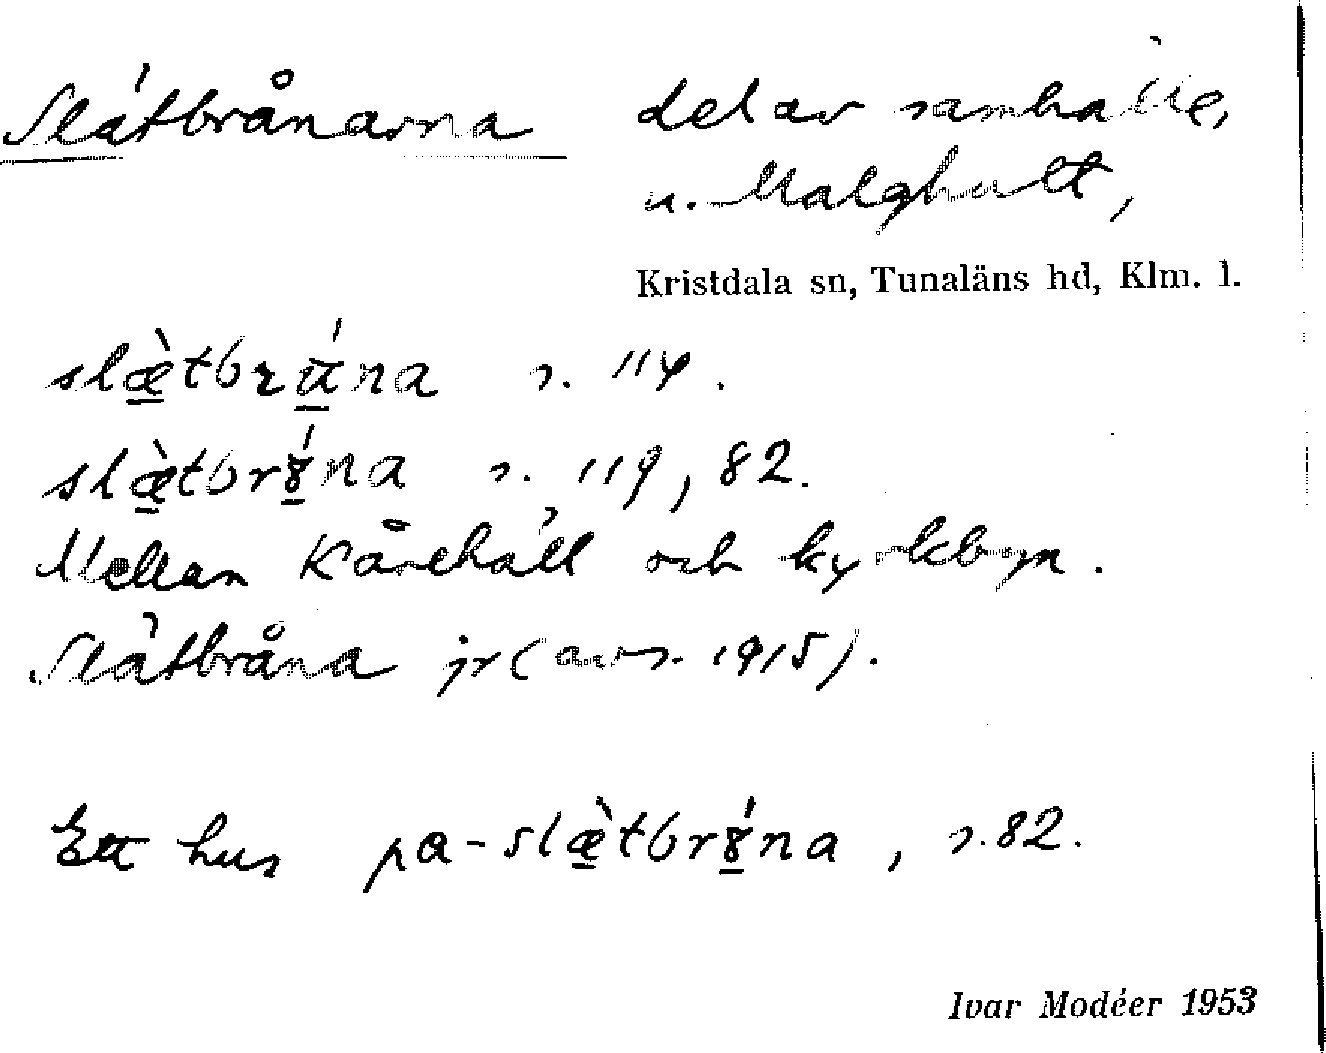 Slätbrånarna del av samhälle,
u. Malghult,
Kristdala sn, Tunaläns hd, Klm. l.
s. 114.
s. 119, 82.
Mellan Kårehäll och kyrkbyn.
Slätbråna jr (avs. 1915).
Ett hus pa- , s. 82.
Ivar Modéer 1953